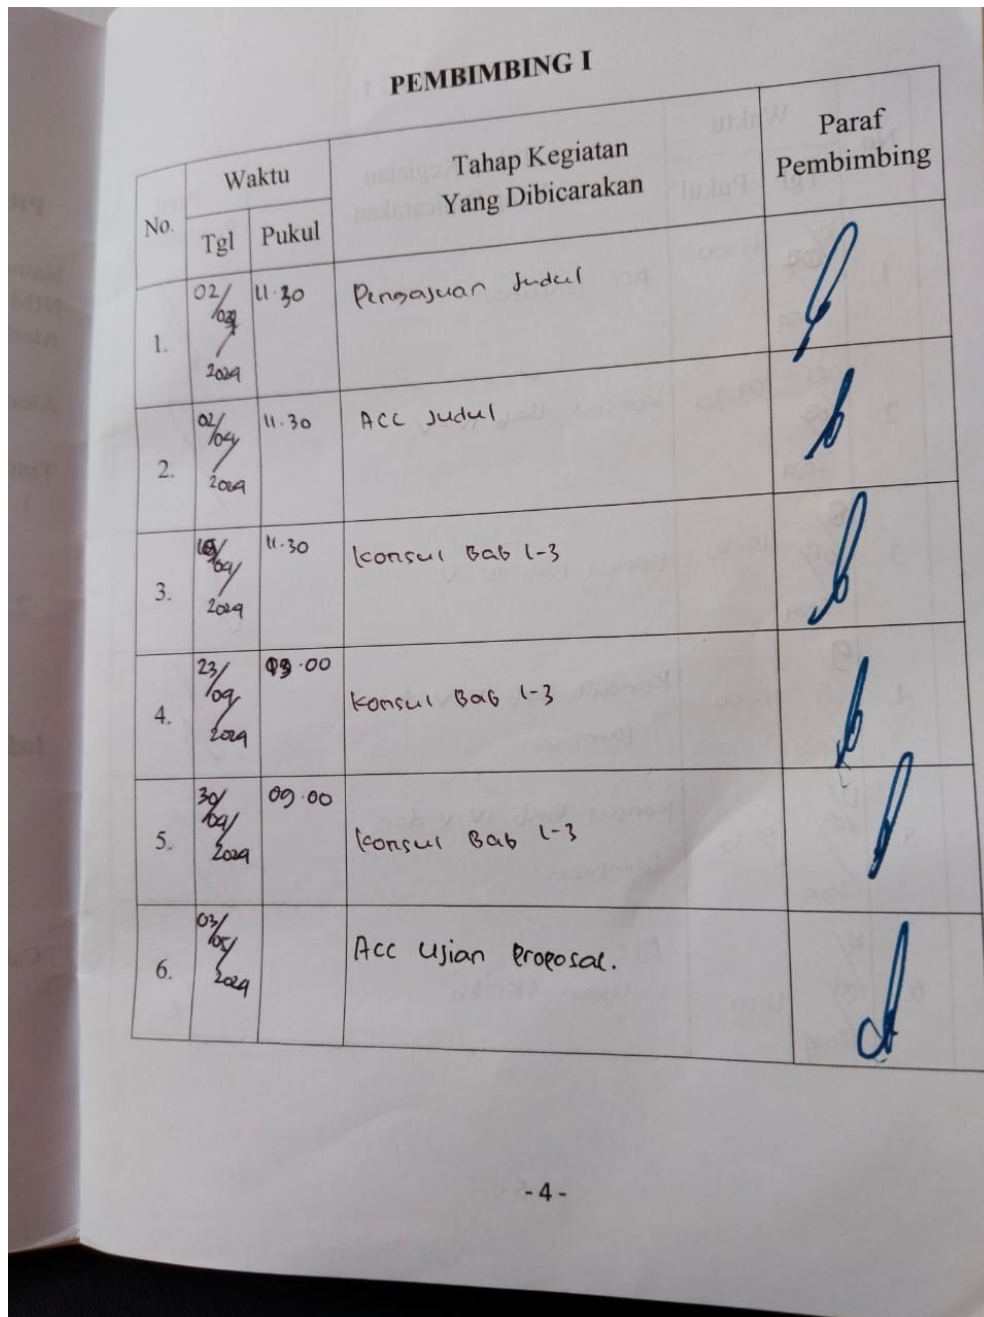 PEMBIMBING I
No.
Waktu
Tgl
Pukul
Tahap Kegiatan
Yang Dibicarakan
Paraf
Pembimbing
1.
02/
2024
11.30
Pengajuan Judul
2.
02/
04/
2024
11.30
ACC Judul
3.
04/
2024
11.30
Konsul Bab 1-3
4.
23/
04/
2024
09.00
Konsul Bab 1-3
5.
30/
04/
2024
09.00
Konsul Bab 1-3
6.
03/
05/
2024
Acc Ujian Proposal.
- 4 -